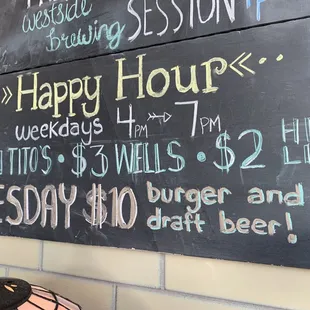 westside SESSION
brewing
»Happy Hour«
weekdays 4PM → 7PM
TITO'S • $3 WELLS • $2
ESDAY $10 burger and
draft beer!